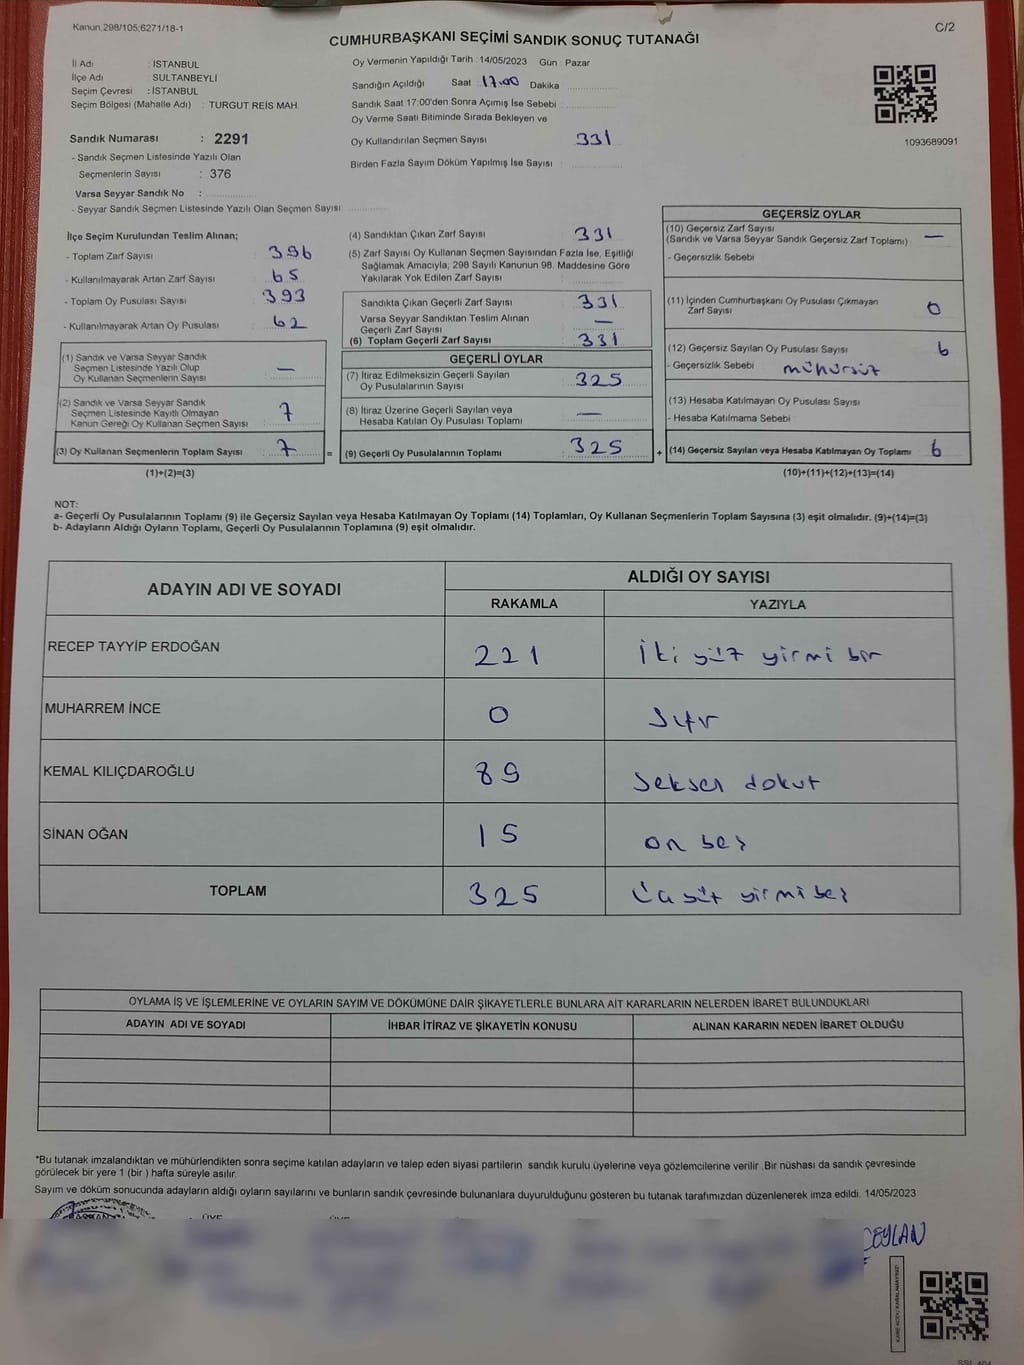 Kanun,298/105;6271/18-1
C/2
CUMHURBAŞKANI SEÇİMİ SANDIK SONUÇ TUTANAĞI
İl Adı : İSTANBUL
İlçe Adı : SULTANBEYLİ
Seçim Çevresi : İSTANBUL
Seçim Bölgesi (Mahalle Adı) : TURGUT REİS MAH.
Sandık Numarası : 2291
- Sandık Seçmen Listesinde Yazılı Olan
Seçmenlerin Sayısı : 376
Varsa Seyyar Sandık No :
- Seyyar Sandık Seçmen Listesinde Yazılı Olan Seçmen Sayısı:
Oy Vermenin Yapıldığı Tarih : 14/05/2023 Gün : Pazar
Sandığın Açıldığı Saat 17.00 Dakika
Sandık Saat 17:00'den Sonra Açımış İse Sebebi
Oy Verme Saati Bitiminde Sırada Bekleyen ve
Oy Kullandırılan Seçmen Sayısı : 331
Birden Fazla Sayım Döküm Yapılmış İse Sayısı :
1093689091
İlçe Seçim Kurulundan Teslim Alınan;
- Toplam Zarf Sayısı : 396
- Kullanılmayarak Artan Zarf Sayısı : 65
- Toplam Oy Pusulası Sayısı : 393
- Kullanılmayarak Artan Oy Pusulası : 62
(1) Sandık ve Varsa Seyyar Sandık
Seçmen Listesinde Yazılı Olup
Oy Kullanan Seçmenlerin Sayısı : —
(2) Sandık ve Varsa Seyyar Sandık
Seçmen Listesinde Kayıtlı Olmayan
Kanun Gereği Oy Kullanan Seçmen Sayısı : 7
(3) Oy Kullanan Seçmenlerin Toplam Sayısı : 7
(1)+(2)=(3)
=
(4) Sandıktan Çıkan Zarf Sayısı : 331
(5) Zarf Sayısı Oy Kullanan Seçmen Sayısından Fazla İse, Eşitliği
Sağlamak Amacıyla, 298 Sayılı Kanunun 98. Maddesine Göre
Yakılarak Yok Edilen Zarf Sayısı :
Sandıkta Çıkan Geçerli Zarf Sayısı : 331
Varsa Seyyar Sandıktan Teslim Alınan
Geçerli Zarf Sayısı : —
(6) Toplam Geçerli Zarf Sayısı : 331
GEÇERLİ OYLAR
(7) İtiraz Edilmeksizin Geçerli Sayılan
Oy Pusulalarının Sayısı : 325
(8) İtiraz Üzerine Geçerli Sayılan veya
Hesaba Katılan Oy Pusulası Toplamı : —
(9) Geçerli Oy Pusulalarının Toplamı : 325
+
GEÇERSİZ OYLAR
(10) Geçersiz Zarf Sayısı
(Sandık ve Varsa Seyyar Sandık Geçersiz Zarf Toplamı) : —
- Geçersizlik Sebebi
(11) İçinden Cumhurbaşkanı Oy Pusulası Çıkmayan
Zarf Sayısı 0
(12) Geçersiz Sayılan Oy Pusulası Sayısı 6
- Geçersizlik Sebebi mühürsüz
(13) Hesaba Katılmayan Oy Pusulası Sayısı
- Hesaba Katılmama Sebebi
(14) Geçersiz Sayılan veya Hesaba Katılmayan Oy Toplamı 6
(10)+(11)+(12)+(13)=(14)
NOT:
a- Geçerli Oy Pusulalarının Toplamı (9) ile Geçersiz Sayılan veya Hesaba Katılmayan Oy Toplamı (14) Toplamları, Oy Kullanan Seçmenlerin Toplam Sayısına (3) eşit olmalıdır. (9)+(14)=(3)
b- Adayların Aldığı Oyların Toplamı, Geçerli Oy Pusulalarının Toplamına (9) eşit olmalıdır.
ADAYIN ADI VE SOYADI
ALDIĞI OY SAYISI
RAKAMLA YAZIYLA
RECEP TAYYİP ERDOĞAN 221 İki yüz yirmi bir
MUHARREM İNCE 0 Sıfır
KEMAL KILIÇDAROĞLU 89 Seksen dokuz
SİNAN OĞAN 15 on beş
TOPLAM 325 Üç yüz yirmi beş
OYLAMA İŞ VE İŞLEMLERİNE VE OYLARIN SAYIM VE DÖKÜMÜNE DAİR ŞİKAYETLERLE BUNLARA AİT KARARLARIN NELERDEN İBARET BULUNDUKLARI
ADAYIN ADI VE SOYADI İHBAR İTİRAZ VE ŞİKAYETİN KONUSU ALINAN KARARIN NEDEN İBARET OLDUĞU
*Bu tutanak imzalandıktan ve mühürlendikten sonra seçime katılan adayların ve talep eden siyasi partilerin sandık kurulu üyelerine veya gözlemcilerine verilir .Bir nüshası da sandık çevresinde
görülecek bir yere 1 (bir ) hafta süreyle asılır.
Sayım ve döküm sonucunda adayların aldığı oyların sayılarını ve bunların sandık çevresinde bulunanlara duyurulduğunu gösteren bu tutanak tarafımızdan düzenlenerek imza edildi. 14/05/2023
BAŞKAN ÜYE ÜYE
CEYLAN